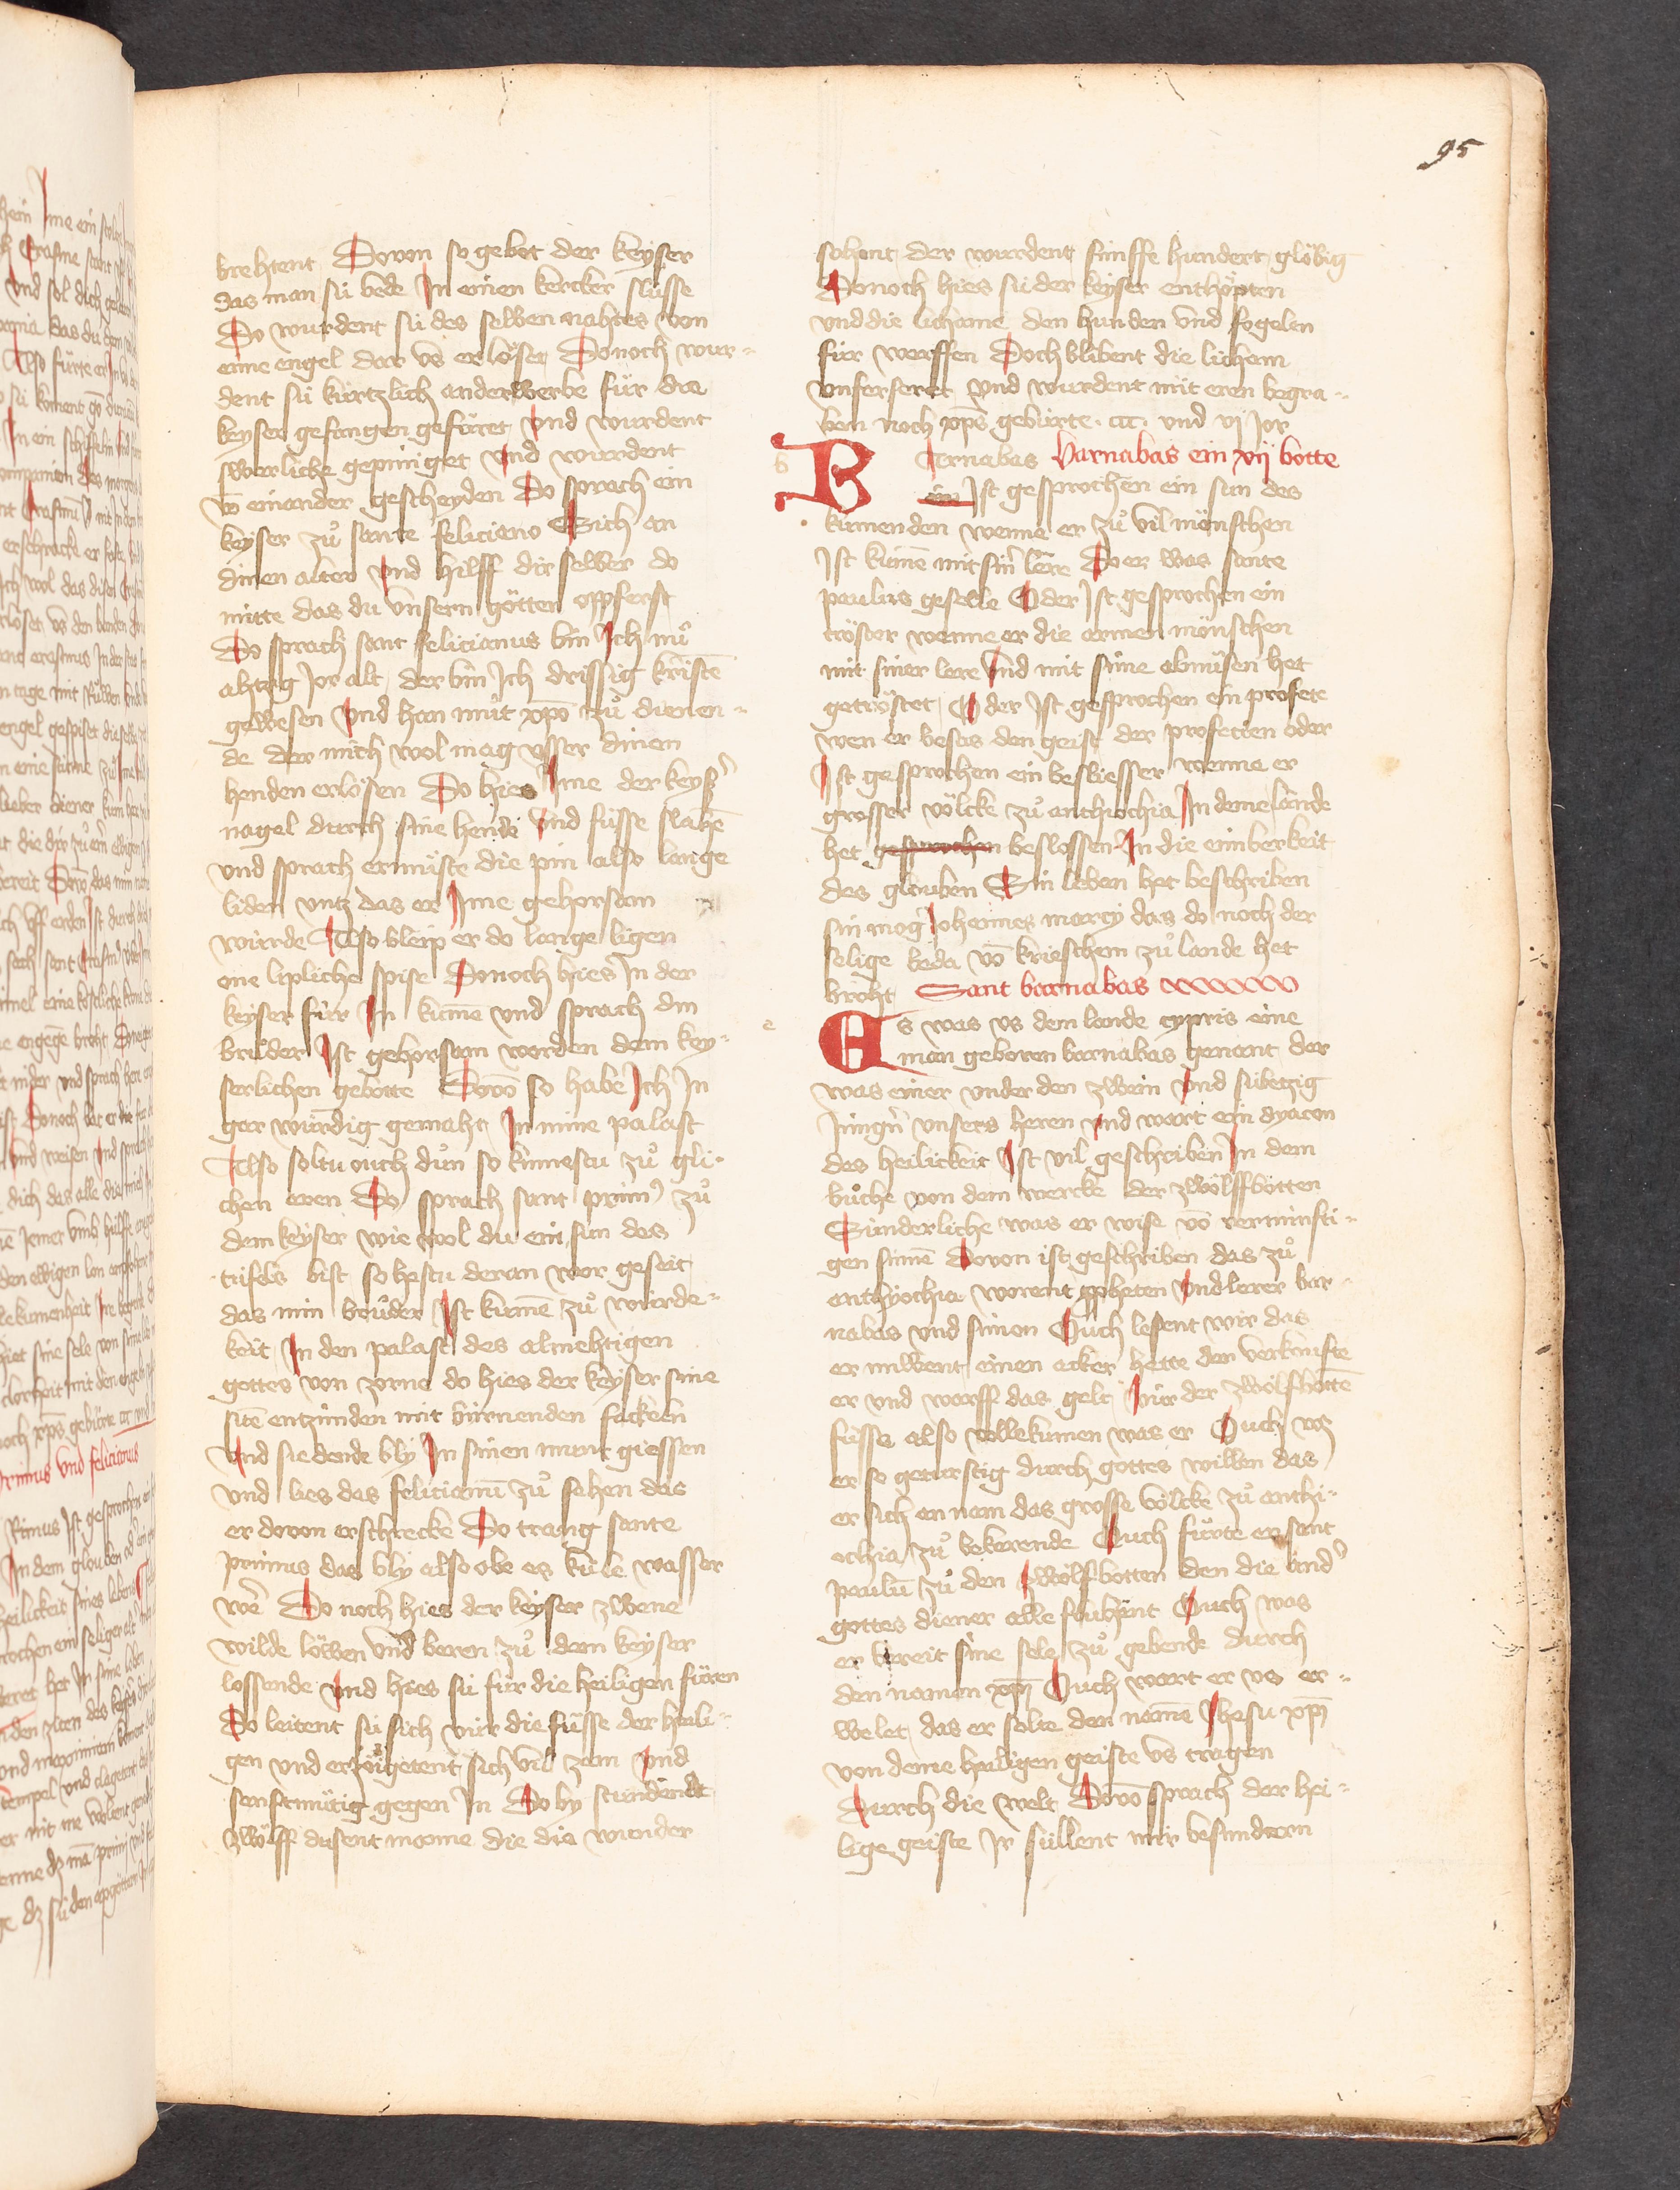 95
brehtent Dovon so gebot der keyser
das man sú bede In einen kercker slusse
Do wurdent sú des selben nahtes von
eime engel dar vs erlöset Donoch wur-
dent sú kúrtzlich anderwerbe fúr die
keyser gefangen gefúrt vnd wurdent
swerliche gepiniget vnd wurdent
vō einander gescheyden Do sprach ein
keyser zů sante feliciano Sich an
dinen alter vnd hilff dir selber do
mitte das du vnsern götten opferst
Do sprach sant felicianus bin Ich nů
ahtzig Jor alt der bin Ich drissig kristē
gewesen vnd han můt xpō zů dienen-
de der mich wol mag vsser dinen
henden erlösen Do hies Ime der keyß
nagel durch sine hende vnd fússe slahē
vnd sprach er můste die pin also lange
liden vntz das er Ime gehorsam
wurde Also bleip er do lange ligen
one lipliche spise Donoch hies In der
keyser fúr In kumē vnd sprach din
brůder Ist gehorsam worden dem key-
serlichen gebotte Dovō so habe Ich In
gar wúrdig gemaht In mine palast
Also soltu ouch důn so kummestu zů gli-
chen eren Do sprach sant prim9 zů
dem keyser wie wol du ein sun des
túfels bist so hestu deran wor geseit
das min brůder Ist kumē zů wúrde-
keit In den palast des almehtigen
gottes von zorne do hies der keyser sine
sitē entzúnden mit búrnenden fackeln
vnd siedende bly In sinen munt giessen
vnd lies das felicianū zů sehen das
er dovon erschrecke Do trang sante
primus das bly also obe es kúle wasser
wē Do noch hies der keyser zwene
wilde löwen vnd beren zů dem keyser
lossende vnd hies sú fúr die heiligen fúren
Do leitent sú sich vúr die fússe der heili-
gen vnd erzöigetent sich vil zam vnd
senftmútig gegen In Do by stundendt
zwölff dusent manne die die wunder
sohent der wurdent fúnffe hundert glöbig
Donoch hies sú der keyser enthöpten
vnd die lichame den hunden vnd fogelen
fúr werffen Doch blibent die lichem
vnferseret vnd wurdent mit eren begra-
ben noch xp̄s gebúrte ccc vnd vj Jor
Barnabas Barnabas ein xij botte
ein Ist gesprochen ein sun des
kumenden wenne er zů vil mönschen
Ist kumē mit sinr lere Do er was sante
paulus geselle Oder Ist gesprochen ein
tröster wenne er die armen mönschen
mit siner lere vnd mit sime almůsen het
getröstet Oder Ist gesprochen ein profete
wen er besas den geist der profecien oder
Ist gesprochen ein besliesser wenne er
grosser völcke zů anthiochia In deme lande
het gesprochen beslossen In die einberkeit
des glouben Sin leben het beschriben
sin mog Johannes marcy das do noch der
selige beda vō krieschem zů lande het
broht Sant barnabas
Es was vs dem lande cypris eine
man geboren barnabas genant der
was einer vnder den zwein vnd sübetzig
Júngern vnsers heren vnd wart ein dyacon
des heilickeit Ist vil geschriben In dem
bůche von dem wercke der zwölffbotten
Sunderliche was er wise vō vernúnfti-
gen sinnē Dovon ist geschriben das zů
anthyochia worent ppheten vnd lerer bar-
nabas vnd simon Ouch lesent wir das
er niwent einen acker hette den verkoufte
er vnd warff das gelt Fúr der zwölfbottē
fússe also vollekumen was er Ouch wz
er so geturstig durch gottes willen das
er sich an nam das grosse völcke zů anthi-
ochia zů bekerende Ouch fúrte er sant
paulū zů den zwölfbotten den die and'
gottes diener alle schuhtent Ouch was
er bereit sine sele zů gebende durch
den namen xp̄i Ouch wart er vs er-
welet das er solte den namē Jhesu xp̄i
von deme heiligen geiste vs tragen
Durch die welt Dovō sprach der hei-
lige geiste Ir súllent mir besundern